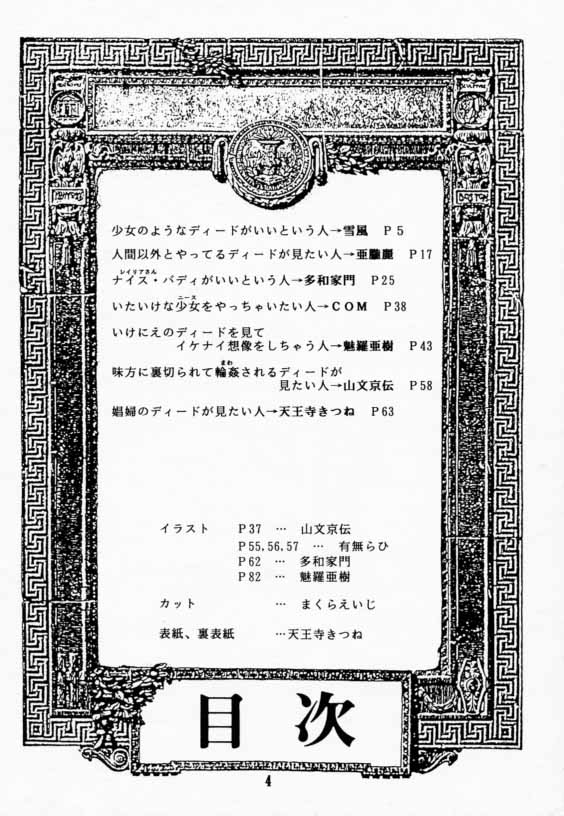 少女のようなディードがいいという人→雪風 P5
人間以外とやってるディードが見たい人→亜朧麗 P17
レイリアさん
ナイス・バディがいいという人→多和家門 P25
ニース
いたいけな少女をやっちゃいたい人→COM P38
いけにえのディードを見て
イケナイ想像をしちゃう人→魅羅亜樹 P43
まわ
味方に裏切られて輪姦されるディードが
見たい人→山文京伝 P58
娼婦のディードが見たい人→天王寺きつね P63
イラスト P37 … 山文京伝
P55,56,57 … 有無らひ
P62 … 多和家門
P82 … 魅羅亜樹
カット … まくらえいじ
表紙、裏表紙 …天王寺きつね
目次
4